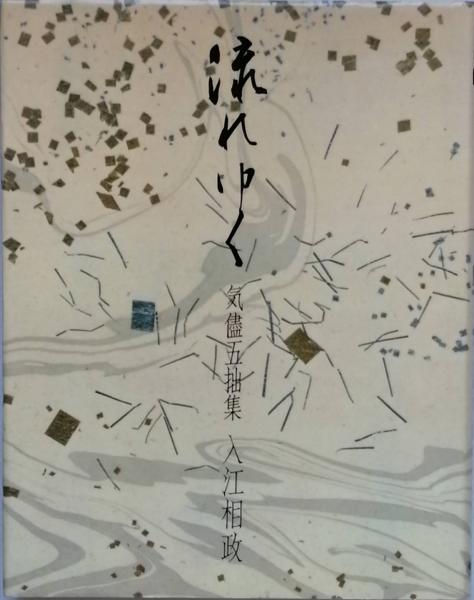 流れゆく
気儘五拙集
入江相政